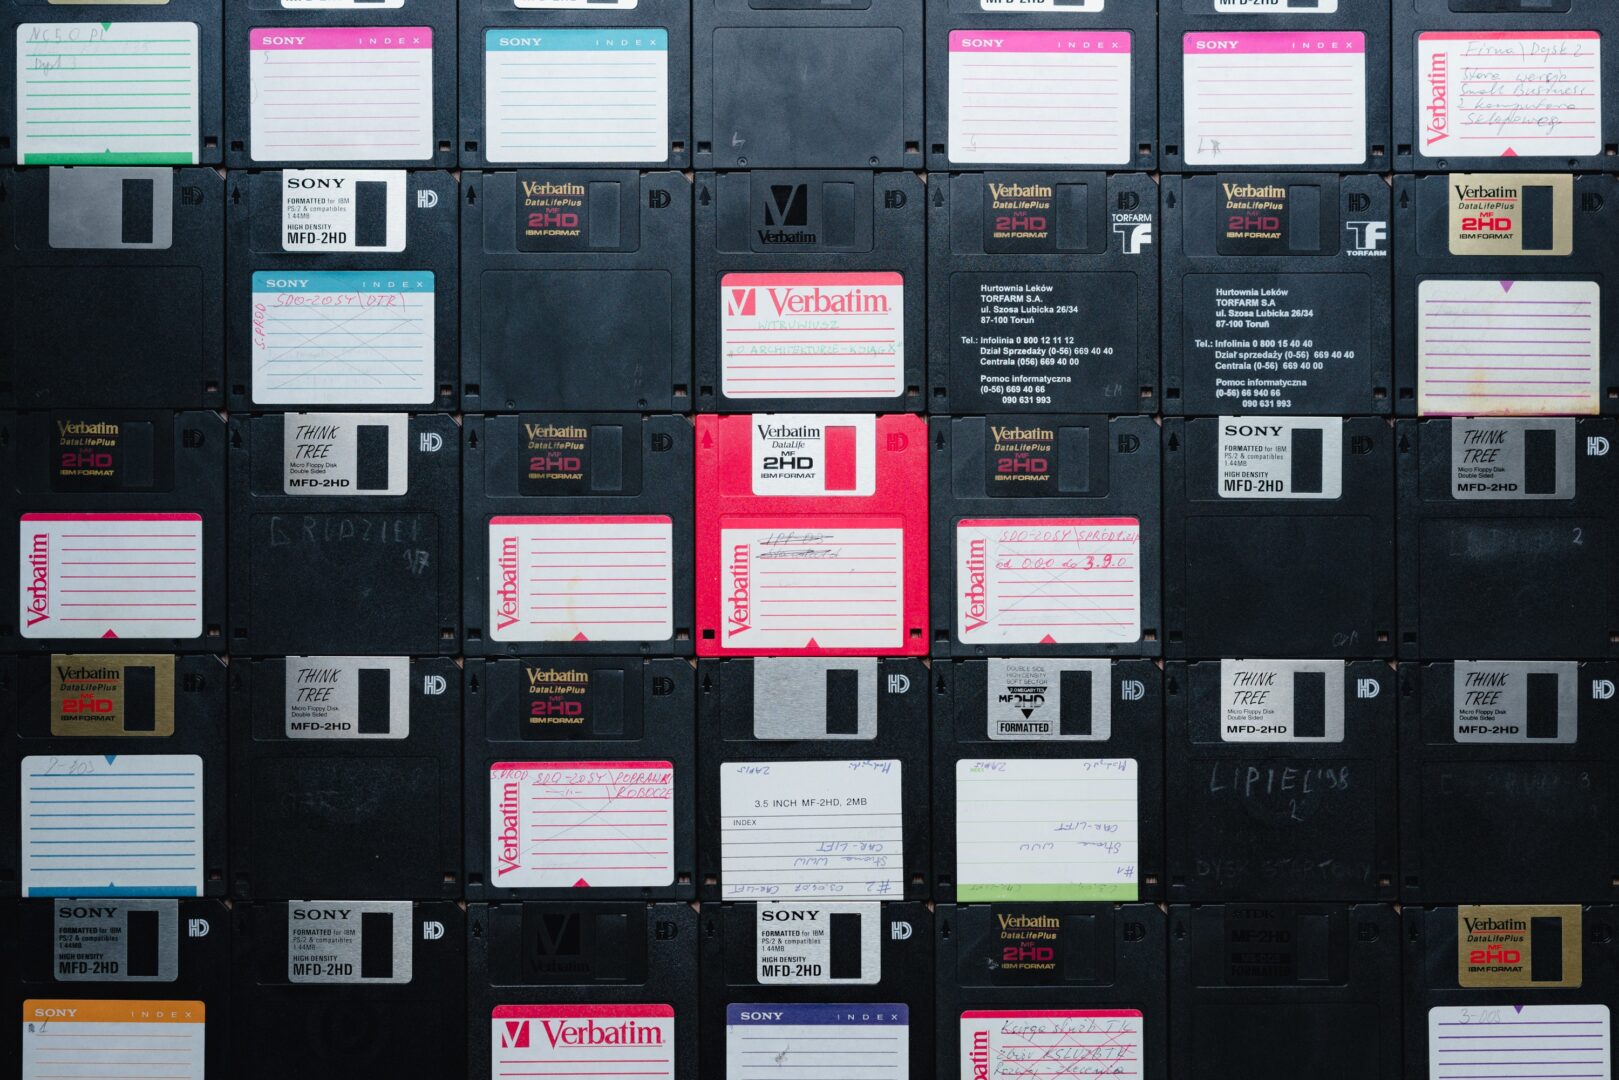 MFD-2HD
MFD-2HD
MFD-2HD
SONY INDEX
SONY INDEX
SONY INDEX
SONY INDEX
Verbatim
Firma\Dysk 2
Stara wersja
Small Business
z komputera
sklepowego
HD
SONY
FORMATTED for IBM
PS/2 & compatibles
1.44MB
HIGH DENSITY
MFD-2HD
HD
SONY INDEX
SDO-20SY\DTR\
S.PROD
Verbatim
DataLifePlus
MF
2HD
IBM FORMAT
HD
Verbatim
HD
Verbatim
WITRUWIUSZ
"O ARCHITEKTURZE-KSIĄG X"
Verbatim
DataLifePlus
MF
2HD
IBM FORMAT
HD
TORFARM
TF
Hurtownia Leków
TORFARM S.A.
ul. Szosa Lubicka 26/34
87-100 Toruń
Tel.: Infolinia 0 800 12 11 12
Dział Sprzedaży (0-56) 669 40 40
Centrala (056) 669 40 00
Pomoc informatyczna
(0-56) 669 40 66
090 631 993
Verbatim
DataLifePlus
MF
2HD
IBM FORMAT
HD
TF
TORFARM
Hurtownia Leków
TORFARM S.A
ul. Szosa Lubicka 26/34
87-100 Toruń
Tel.: Infolinia 0 800 15 40 40
Dział sprzedaży (0-56) 669 40 40
Centrala (0-56) 669 40 00
Pomoc informatyczna
(0-56) 66 940 66
090 631 993
Verbatim
DataLifePlus
MF
2HD
IBM FORMAT
HD
Verbatim
DataLifePlus
MF
2HD
IBM FORMAT
HD
Verbatim
THINK
TREE
Micro Floppy Disk
Double Sided
MFD-2HD
HD
Verbatim
DataLifePlus
MF
2HD
IBM FORMAT
HD
Verbatim
Verbatim
DataLife
MF
2HD
IBM FORMAT
HD
Verbatim
Verbatim
DataLifePlus
MF
2HD
IBM FORMAT
HD
Verbatim
SDO-20SY\SPROD1.zip
od 0.0.0 do 3.9.0
SONY
FORMATTED for IBM
PS/2 & compatibles
1.44MB
HIGH DENSITY
MFD-2HD
HD
THINK
TREE
Micro Floppy Disk
Double Sided
MFD-2HD
HD
2
Verbatim
DataLifePlus
MF
2HD
IBM FORMAT
HD
THINK
TREE
Micro Floppy Disk
Double Sided
MFD-2HD
HD
Verbatim
DataLifePlus
MF
2HD
IBM FORMAT
HD
Verbatim
S.PROD SDO-20SY\POPRAWKI
ROBOCZE
HD
ZAPIS
3.5 INCH MF-2HD, 2MB
INDEX
CAR-LIFT
Strona WWW
#2 CAR-LIFT
DOUBLE SIDE
HIGH DENSITY
SOFT SECTOR
2.0 MEGABYTES
MF2HD
FORMATTED
HD
ZAPIS
CAR-LIFT
Strona WWW
#1
THINK
TREE
Micro Floppy Disk
Double Sided
MFD-2HD
HD
LIPIEC '98
2
THINK
TREE
Micro Floppy Disk
Double Sided
MFD-2HD
HD
3
SONY
FORMATTED for IBM
PS/2 & compatibles
1.44MB
HIGH DENSITY
MFD-2HD
HD
SONY INDEX
1
SONY
FORMATTED for IBM
PS/2 & compatibles
1.44MB
HIGH DENSITY
MFD-2HD
HD
Verbatim
HD
Verbatim
SONY
FORMATTED for IBM
PS/2 & compatibles
1.44MB
HIGH DENSITY
MFD-2HD
HD
SONY INDEX
Verbatim
DataLifePlus
MF
2HD
IBM FORMAT
HD
Księga służb TK
TDK
MF-2HD
FORMATTED
HD
Verbatim
DataLifePlus
MF
2HD
IBM FORMAT
HD
3-003